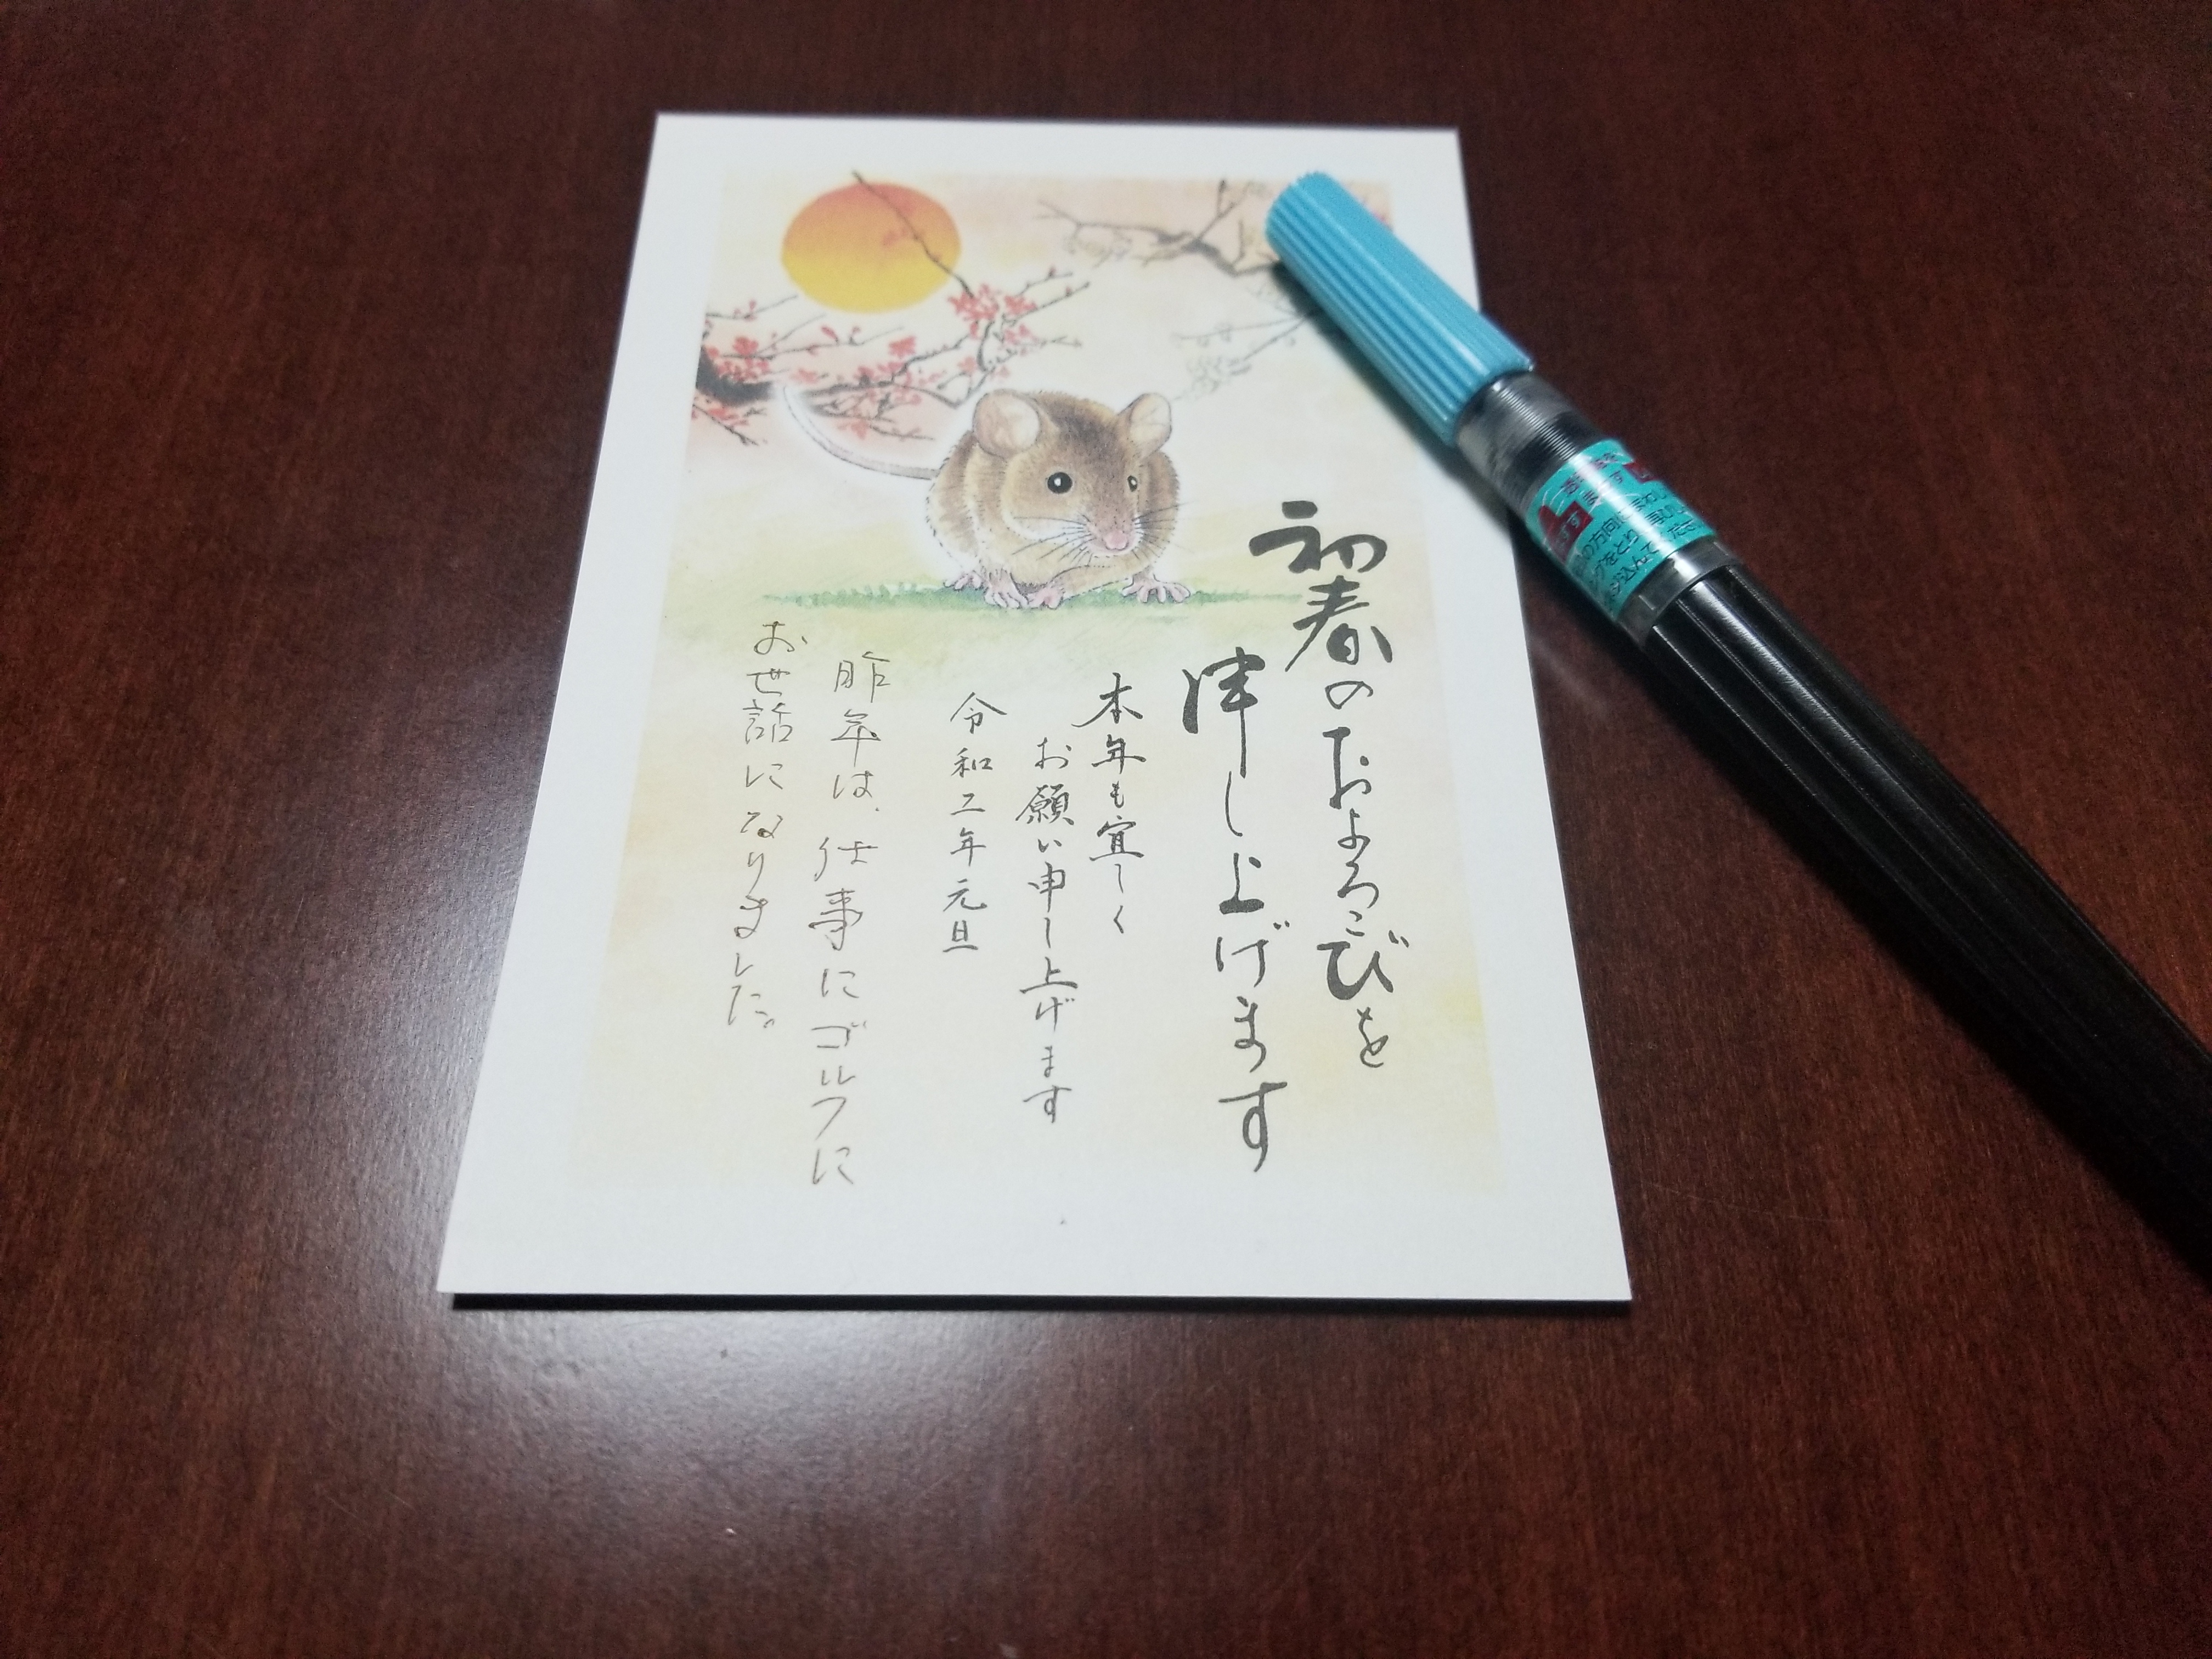 初春のおよろこびを
津し上げます
本年も宜しく
お願い申し上げます
令和二年元旦
昨年は、仕事にゴルフに
お世話になりました。
の方向にまわし